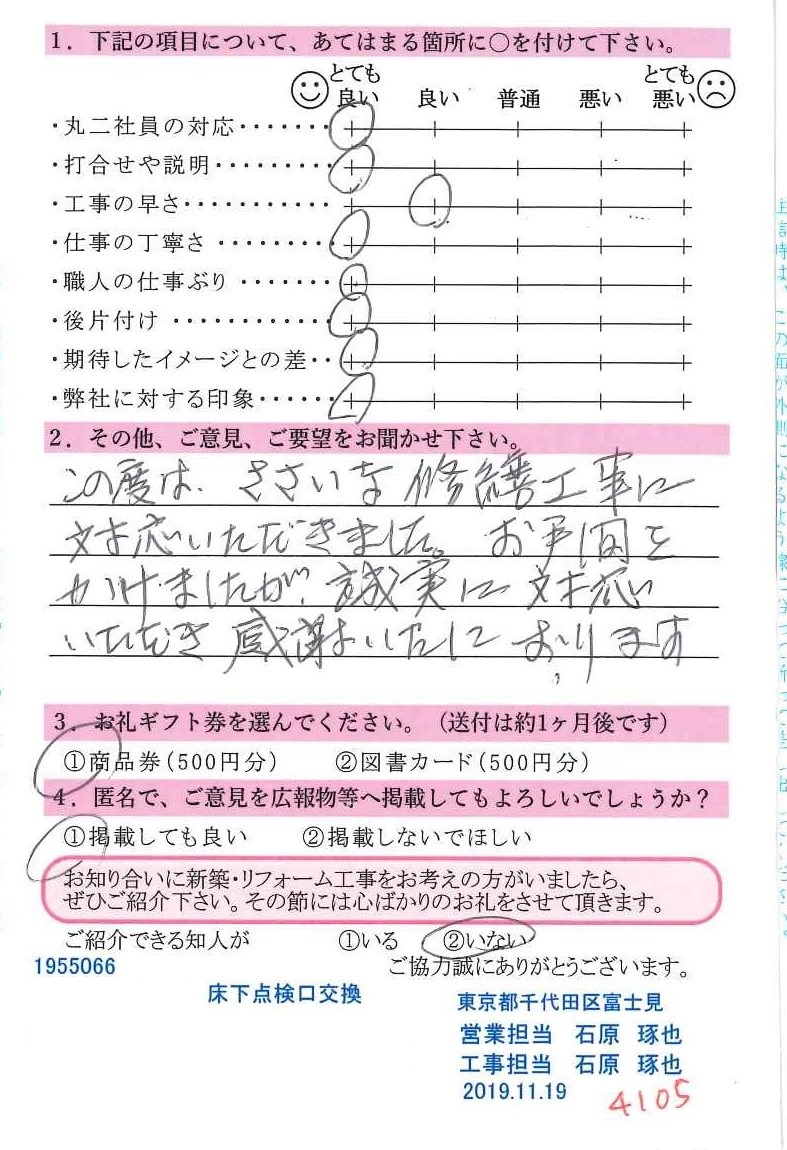 1. 下記の項目について、あてはまる箇所に○を付けて下さい。
とても良い 良い 普通 悪い とても悪い
・丸二社員の対応・・・・・・・
・打合せや説明・・・・・・・・・
・工事の早さ・・・・・・・・・・・
・仕事の丁寧さ・・・・・・・・
・職人の仕事ぶり・・・・・・・
・後片付け・・・・・・・・・・・・
・期待したイメージとの差・・
・弊社に対する印象・・・・・・
2. その他、ご意見、ご要望をお聞かせ下さい。
この度は、ささいな修繕工事に
対応いただきました。お手間を
かけましたが、誠実に対応い
いただき感謝いたしております
3. お礼ギフト券を選んでください。(送付は約1ヶ月後です)
①商品券(500円分) ②図書カード(500円分)
4. 匿名で、ご意見を広報物等へ掲載してもよろしいでしょうか?
①掲載しても良い ②掲載しないでほしい
お知り合いに新築・リフォーム工事をお考えの方がいましたら、
ぜひご紹介下さい。その節には心ばかりのお礼をさせて頂きます。
ご紹介できる知人が ①いる ②いない
1955066 ご協力誠にありがとうございます。
床下点検口交換 東京都千代田区富士見
営業担当 石原 琢也
工事担当 石原 琢也
2019.11.19 4105